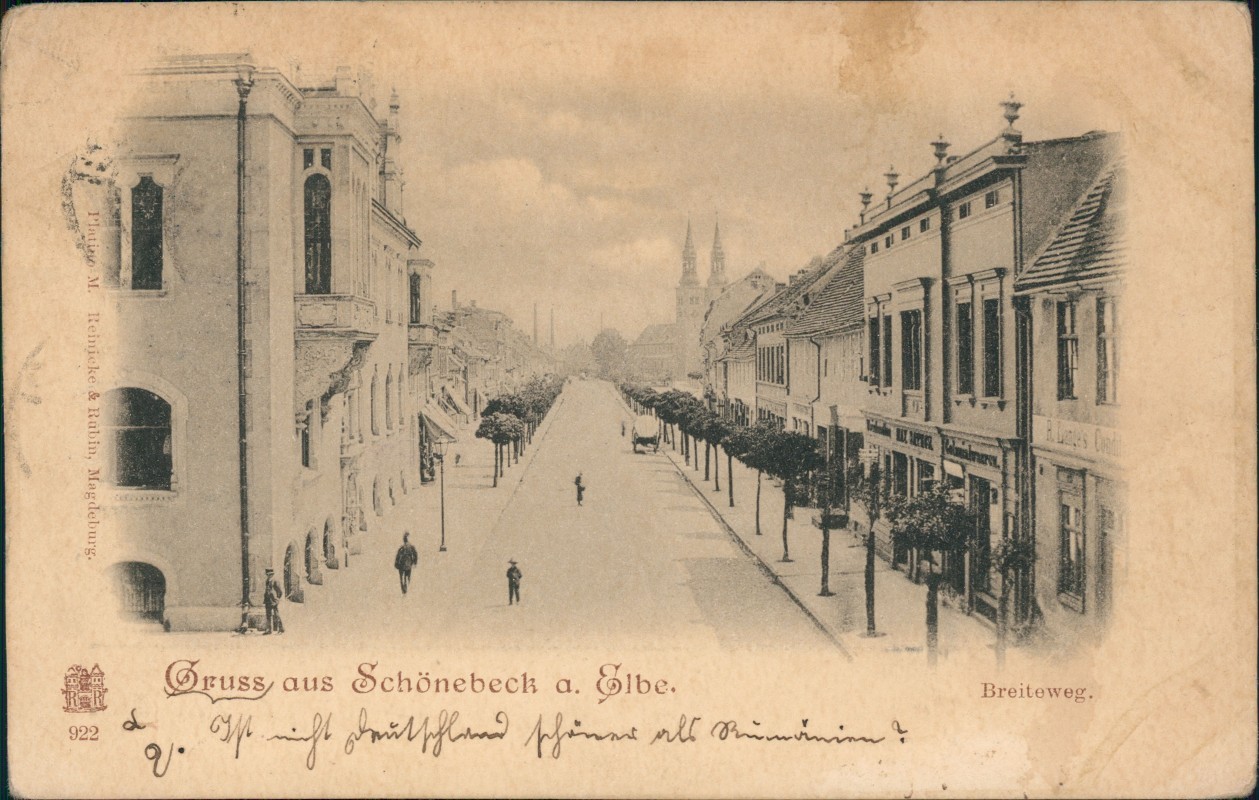 Platino M. Reinicke & Rubin, Magdeburg.
R R
922
Gruss aus Schönebeck a. Elbe.
Breiteweg.
L
V. Ist nicht Deutschland schöner als Rumänien?